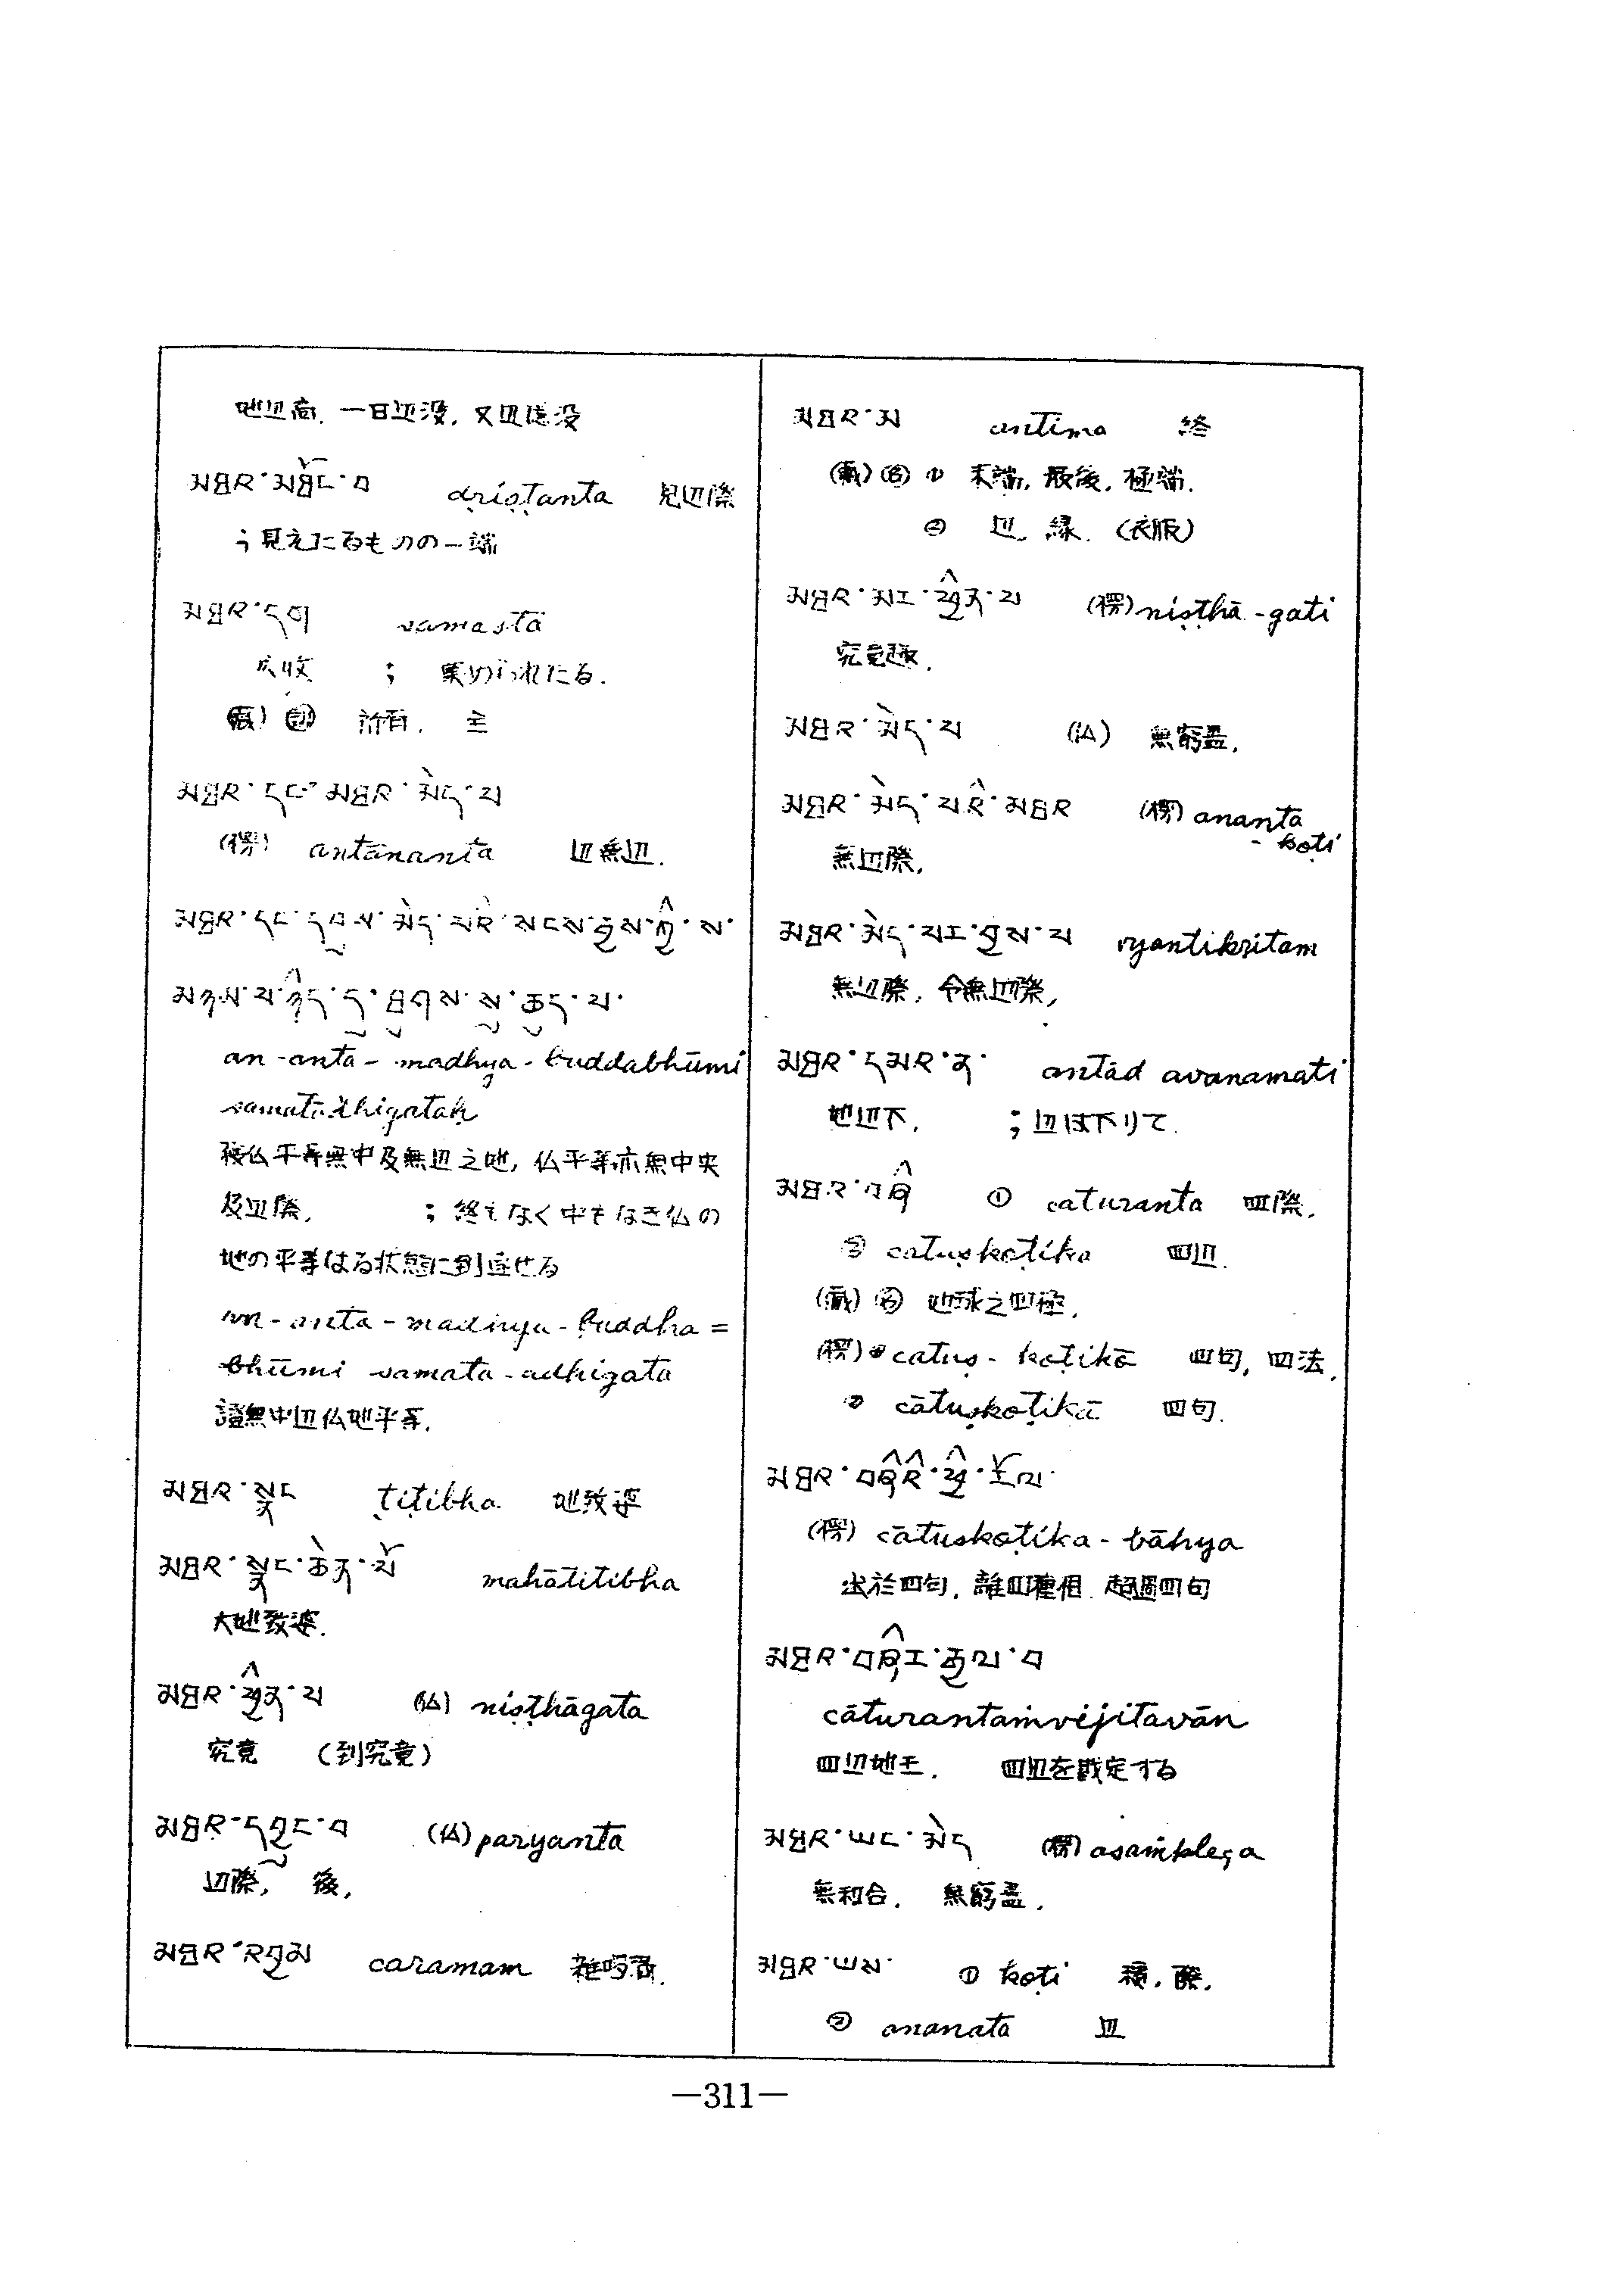 地辺高. 一日辺没, 又辺遠没
མཐར་མཐོང་བ dṛiṣṭanta 見辺際
; 見えたるものの一端
མཐར་དག samasta
; 集められたる.
(蔵) 所有. 主
མཐར་དང་མཐར་མེད་པ
(楞) antānanta 辺無辺.
མཐར་དང་དབུས་མེད་པར་སངས་རྒྱས་ཀྱི་ས་
མཉམ་པ་ཉིད་དུ་ཐུགས་སུ་ཆུད་པ་
an-anta-madhya-buddabhūmi
samatādhigataḥ
仏平等無中及無辺之地, 仏平等亦無中央
及辺際, ; 終もなく中もなき仏の
地の平等なる状態に到達せる
an-anta-madhya-buddha=
bhūmi samata-adhigata
證無中辺仏地平等.
མཐར་སྣང ṭiṭibha 地致婆
མཐར་སྣང་ཆེན་པོ mahātitibha
大地致婆.
མཐར་ཕྱིན་པ (仏) niṣṭhāgata
究竟 (到究竟)
མཐར་དབྱུང་བ (仏) paryanta
辺際, 後,
མཐར་འགྱམ caramam
མཐར་མ antima 終
(蔵) (名) ① 末端, 最後, 極端.
② 辺, 縁. (衣服)
མཐར་མར་ཕྱིན་པ (楞) niṣṭhā-gati
究竟趣.
མཐར་མེད་པ (仏) 無窮盡,
མཐར་མེད་པའི་མཐར (楞) ananta
-koṭi
無辺際,
མཐར་མེད་པར་བྱས་པ vyantikṛitam
無辺際, 令無辺際,
མཐར་དམར་ན་ antād avanamati
地辺下, ; 辺は下りて.
མཐར་བཞི ① caturanta 四際,
② catuṣkoṭika 四辺.
(蔵) (名) 地球之四極,
(楞) ① catuṣ-koṭikā 四句, 四法,
② cātuṣkoṭikā 四句.
མཐར་བཞིའི་ཕྱི་རོལ་
(楞) cātuskoṭika-bāhya
出於四句, 離四種相. 超過四句
མཐར་བཞིར་རྒྱལ་བ
cāturantaṁvijitavān
四辺地王. 四辺を戡定する
མཐར་ཡང་མེད (楞) asaṁkleśa
無和合. 無窮盡.
མཐར་ཡས་ ① koṭi 際.
② ananata 辺
—311—